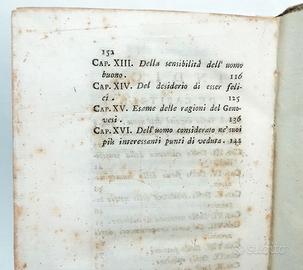 152
CAP. XIII. Della sensibilità dell'uomo
buono. 116
CAP. XIV. Del desiderio di esser feli-
ci. 125
CAP. XV. Esame delle ragioni del Geno-
vesi. 136
CAP. XVI. Dell'uomo considerato ne' suoi
più interessanti punti di veduta. 142
subito